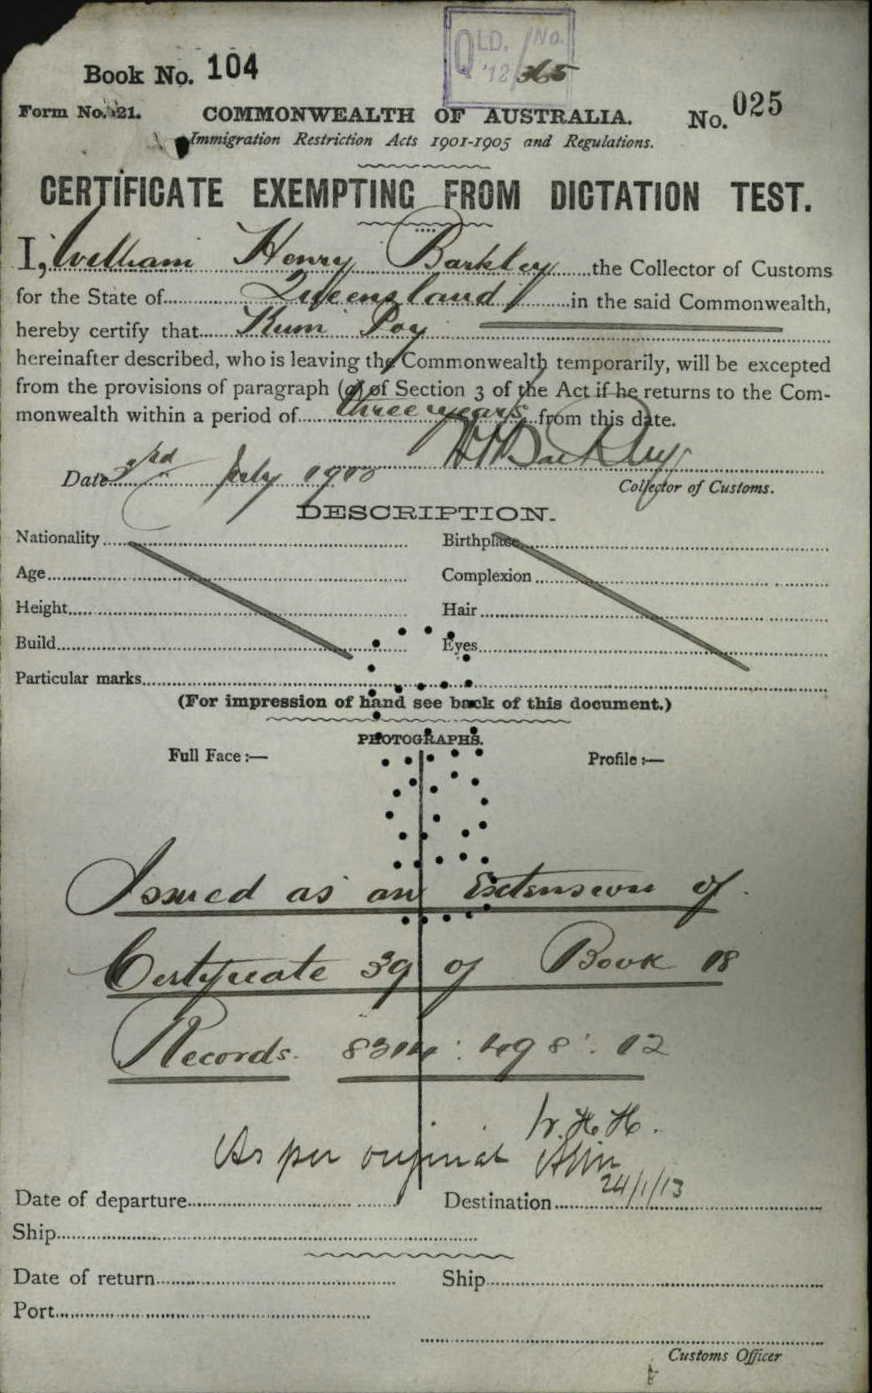 QLD. No.
'12 365
Book No. 104
Form No. 21. COMMONWEALTH OF AUSTRALIA. No. 025
Immigration Restriction Acts 1901-1905 and Regulations.
CERTIFICATE EXEMPTING FROM DICTATION TEST.
I, William Henry Barkley the Collector of Customs
for the State of Queensland in the said Commonwealth,
hereby certify that Kum Poy
hereinafter described, who is leaving the Commonwealth temporarily, will be excepted
from the provisions of paragraph (a) of Section 3 of the Act if he returns to the Com-
monwealth within a period of three years from this date.
WHBarkley
Date 3rd July
Collector of Customs.
DESCRIPTION.
Nationality Birthplace
Age Complexion
Height Hair
Build Eyes
Particular marks
(For impression of hand see back of this document.)
PHOTOGRAPHS.
Full Face:— Profile:—
Issued as an Extension of
Certificate 39 of Book 18
Records 12
W.H.H.
As per original
24/1/13
Date of departure Destination
Ship
Date of return Ship
Port
Customs Officer